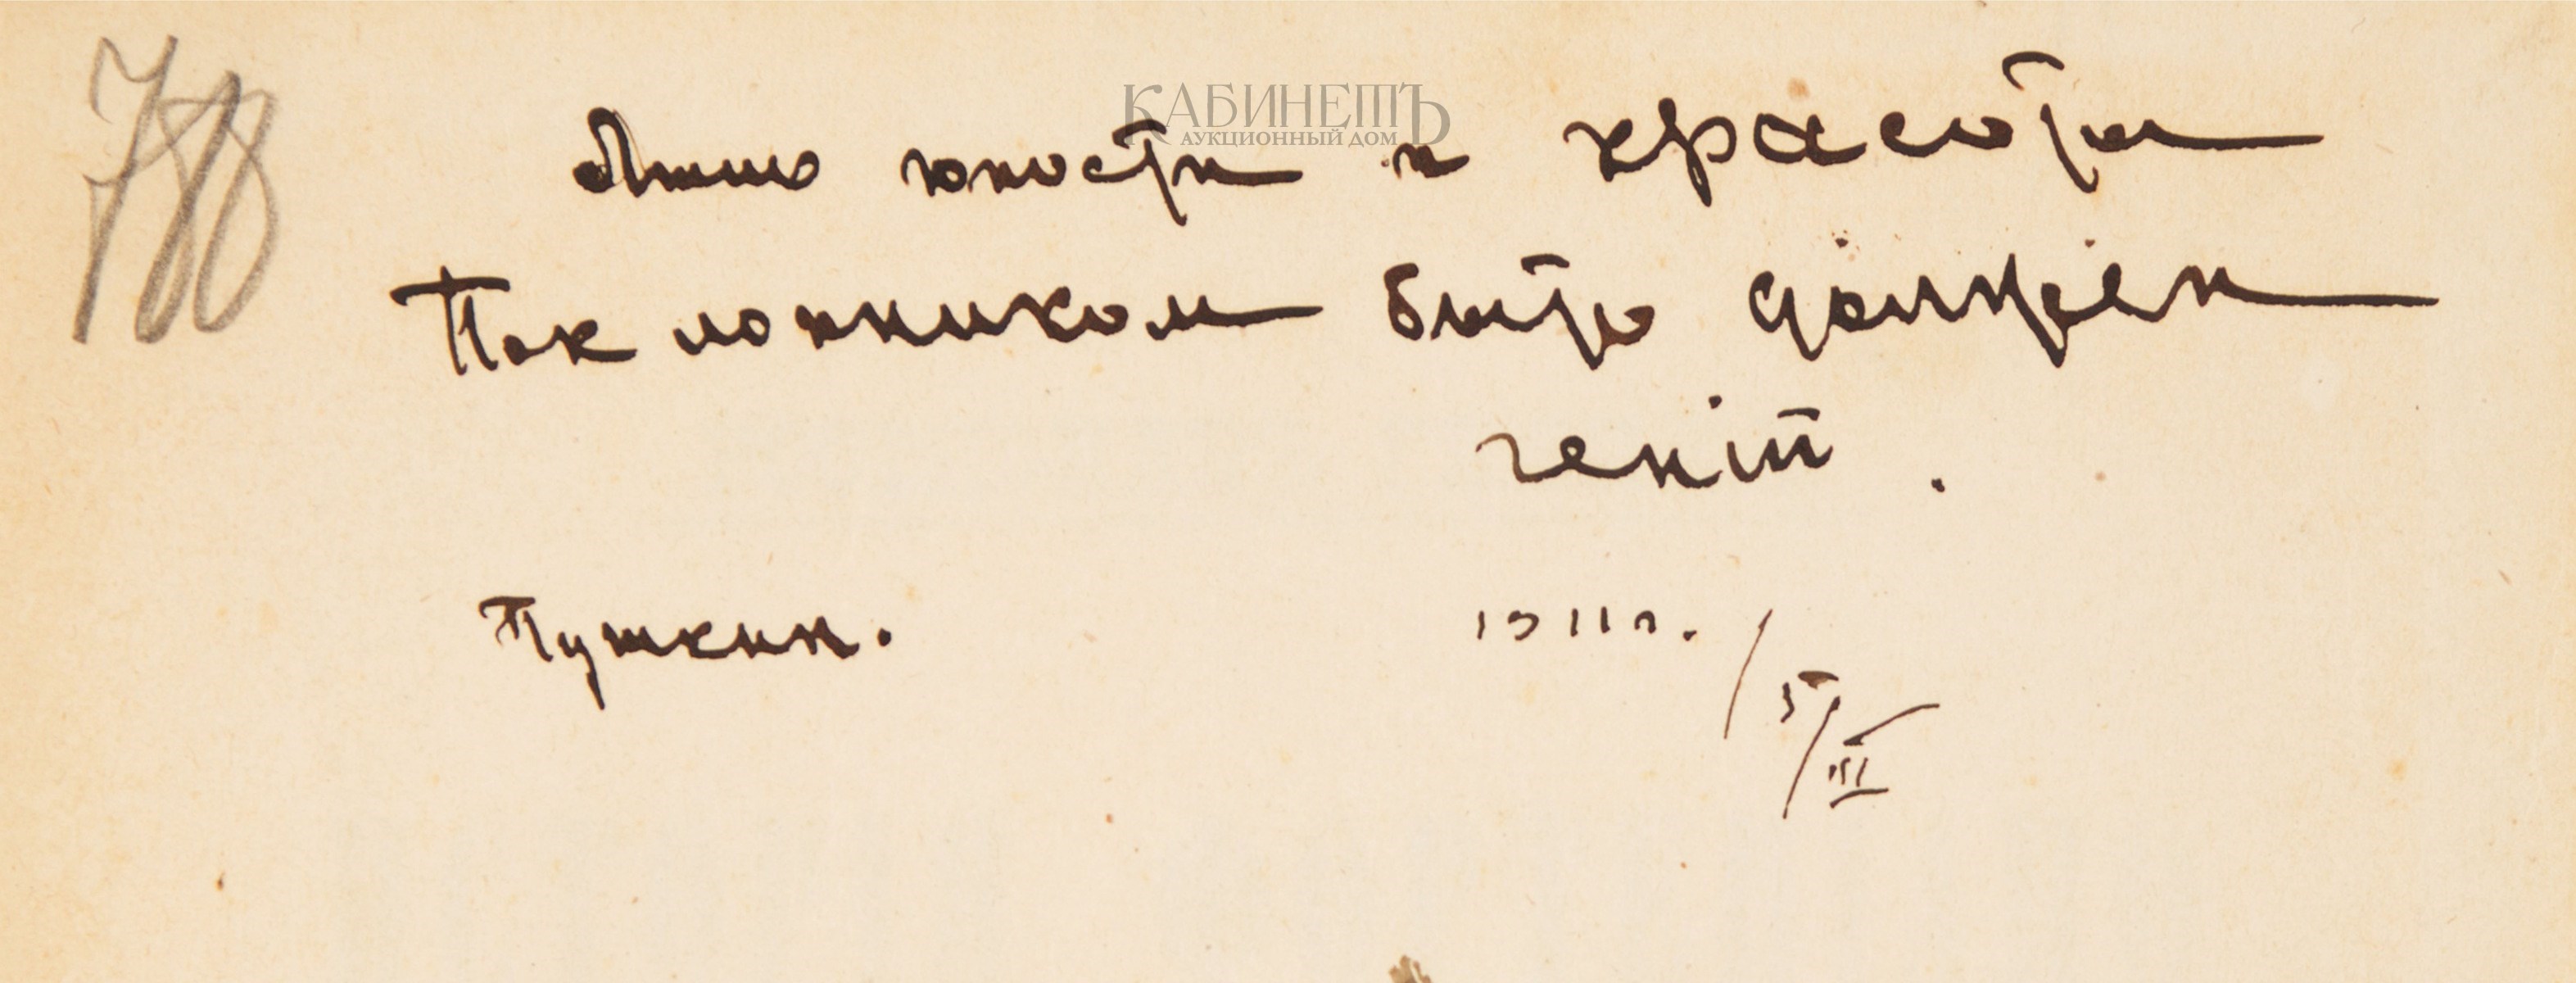 788
КАБИНЕТЪ
АУКЦИОННЫЙ ДОМ
юности и красоты
Поклонником быть должен
гений.
Пушкин. 1911 г. / 5/III